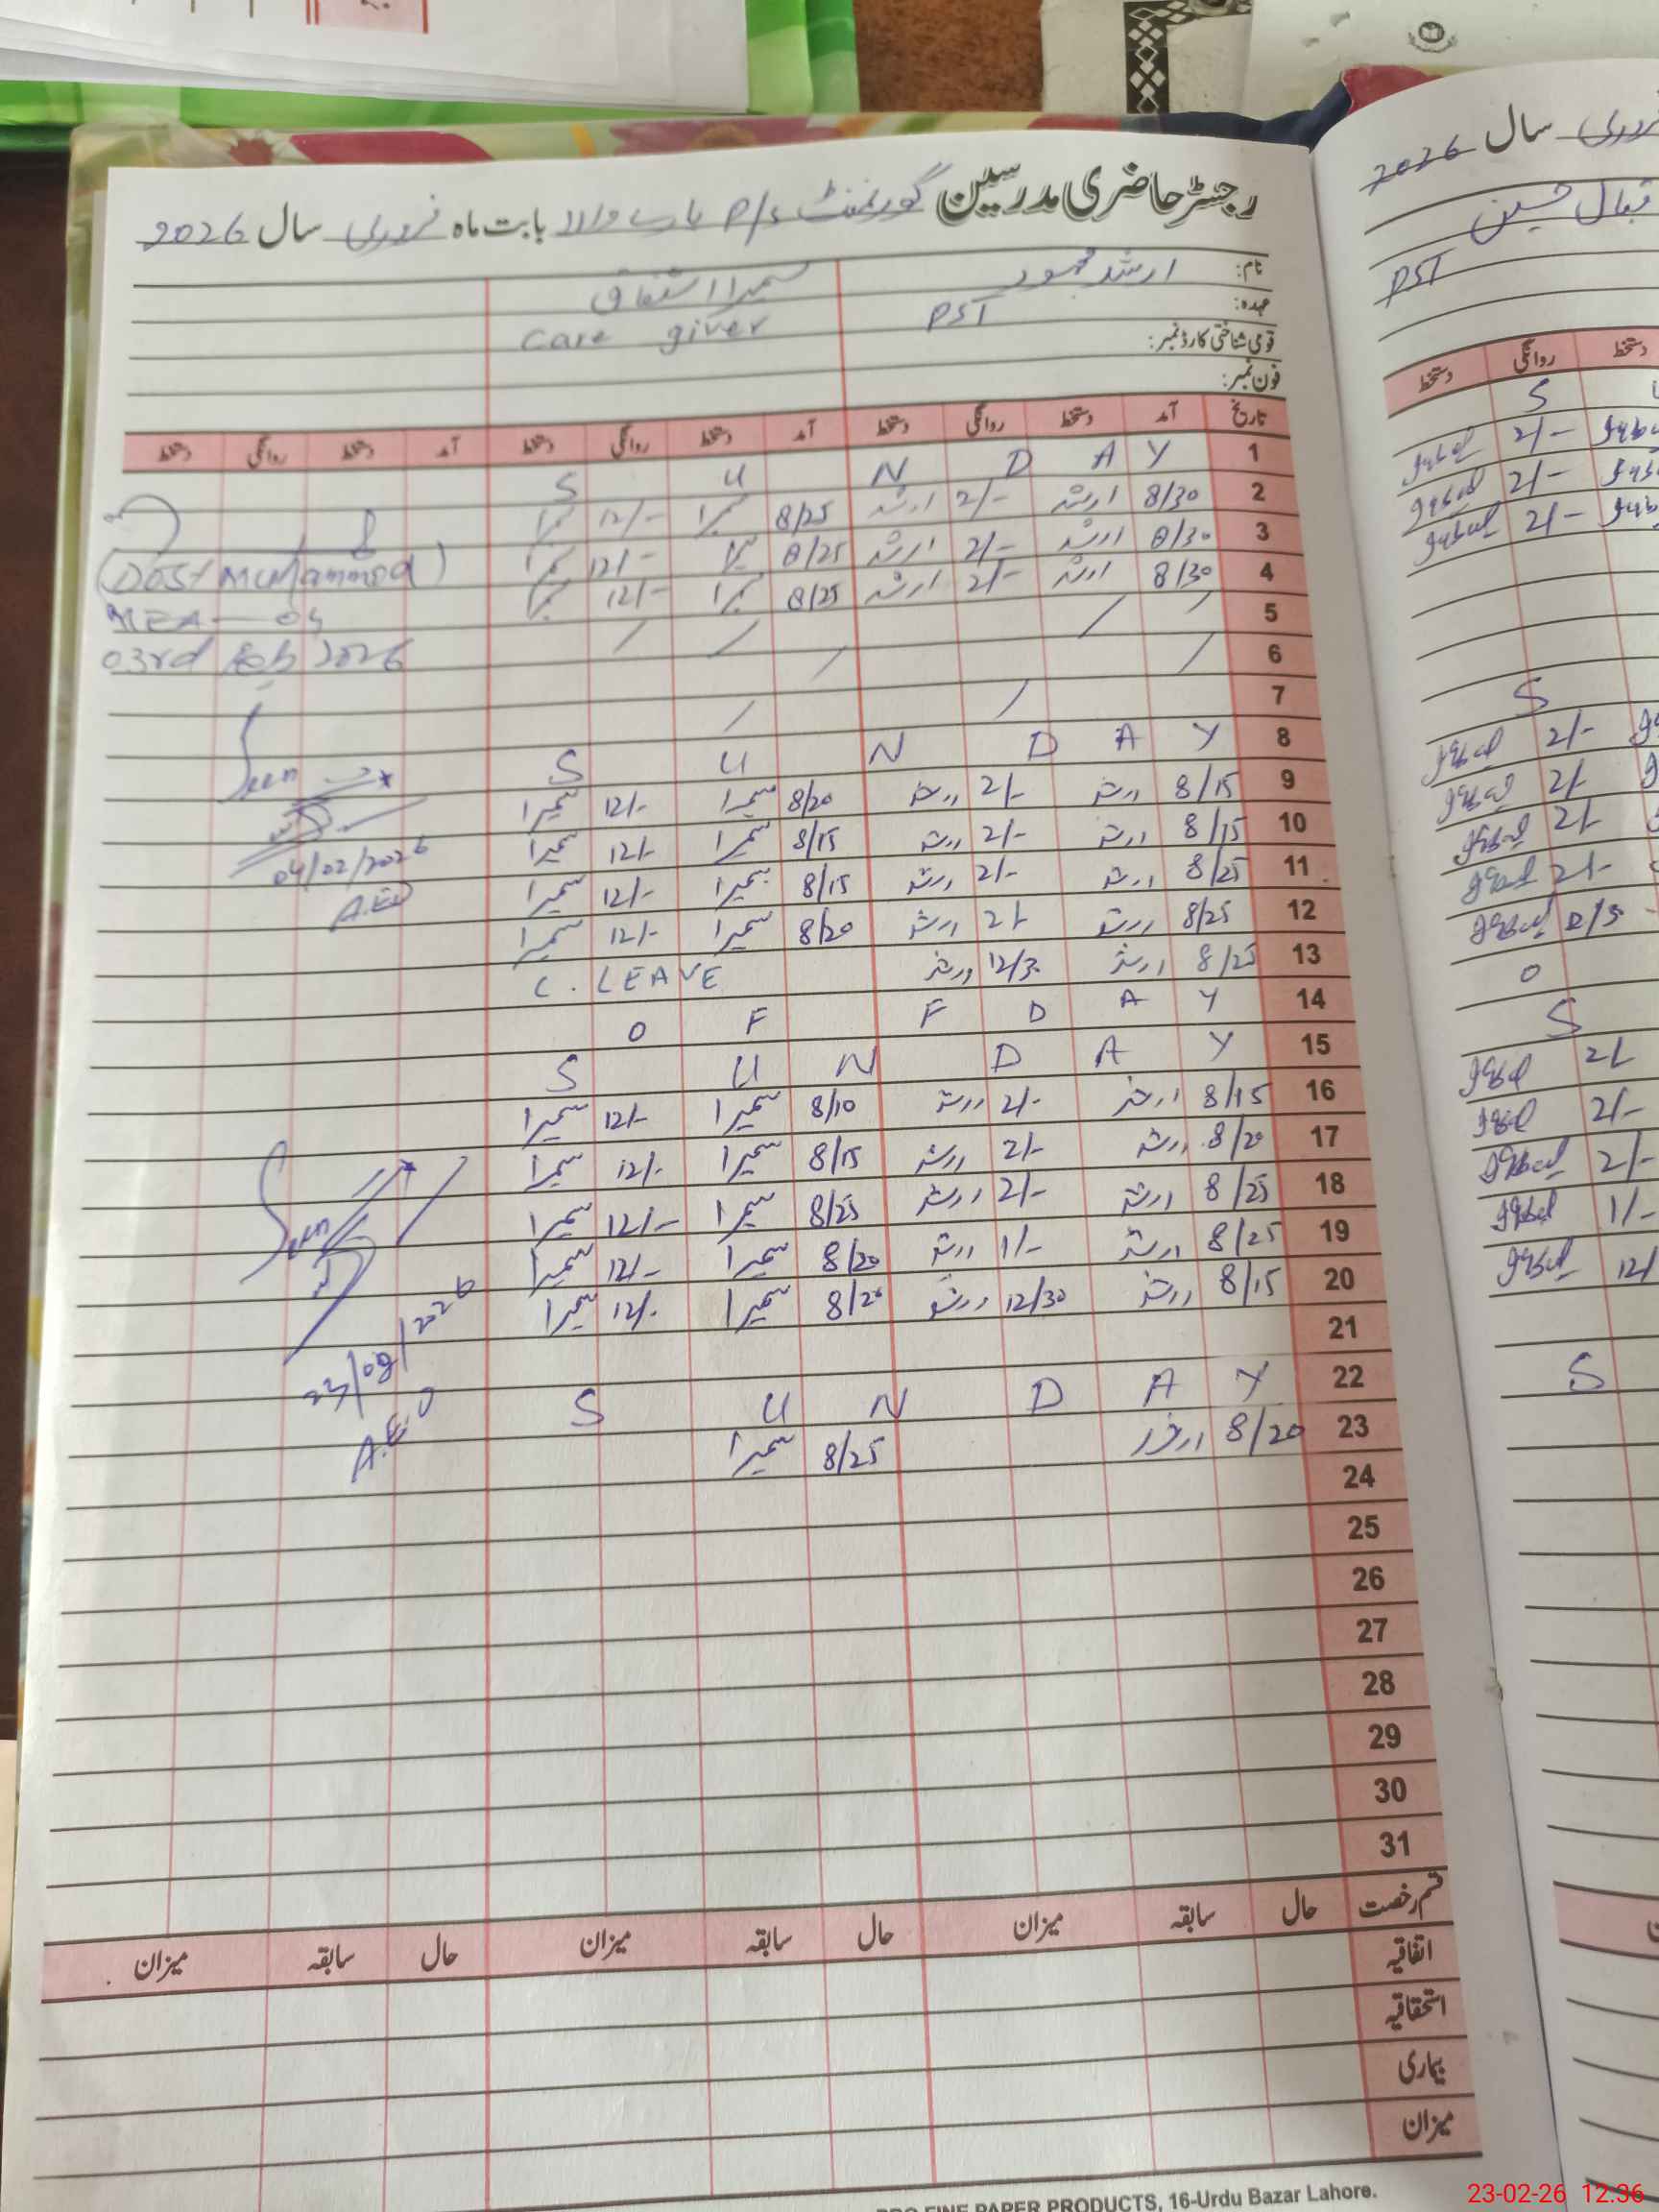 رجسٹر حاضری مدرسین گورنمنٹ P/S بابت ماہ فروری سال 2026
نام: ارشد محمود سمیرا اشفاق
عہدہ: PST Care giver
قومی شناختی کارڈ نمبر:
فون نمبر:
تاریخ آمد دستخط روانگی دستخط آمد دستخط روانگی دستخط آمد دستخط روانگی دستخط
1 S U N D A Y
2 8/30 ارشد 2/- ارشد 8/25 سمیرا 12/- سمیرا
3 8/30 ارشد 2/- ارشد 8/25 سمیرا 12/- سمیرا
4 8/30 ارشد 2/- ارشد 8/25 سمیرا 12/- سمیرا
5
6
7
8 S U N D A Y
9 8/15 ارشد 2/- ارشد 8/20 سمیرا 12/- سمیرا
10 8/15 ارشد 2/- ارشد 8/15 سمیرا 12/- سمیرا
11 8/25 ارشد 2/- ارشد 8/15 سمیرا 12/- سمیرا
12 8/25 ارشد 2/- ارشد 8/20 سمیرا 12/- سمیرا
13 8/25 ارشد 12/3 ارشد C. LEAVE
14 O F F D A Y
15 S U N D A Y
16 8/15 ارشد 2/- ارشد 8/10 سمیرا 12/- سمیرا
17 8/20 ارشد 2/- ارشد 8/15 سمیرا 12/- سمیرا
18 8/25 ارشد 2/- ارشد 8/25 سمیرا 12/- سمیرا
19 8/25 ارشد 1/- ارشد 8/20 سمیرا 12/- سمیرا
20 8/15 ارشد 12/30 ارشد 8/20 سمیرا 12/- سمیرا
21
22 S U N D A Y
23 8/20 ارشد 8/25 سمیرا
24
25
26
27
28
29
30
31
(Dost Muhammad)
MEA-04
03rd Feb 2026
Seen
04/02/2026
A.EO
Seen
A.E.O
قسم رخصت حال سابقہ میزان حال سابقہ میزان حال سابقہ میزان
اتفاقیہ
استحقاقیہ
بیماری
میزان
FINE PAPER PRODUCTS, 16-Urdu Bazar Lahore.
سال 2026
PST
دستخط روانگی دستخط
S
Iqbal 2/-
Iqbal 2/-
Iqbal 2/-
S
Iqbal 2/-
Iqbal 2/-
Iqbal 2/-
Iqbal 2/-
Iqbal
O
S
Iqbal 2/-
Iqbal 2/-
Iqbal 2/-
Iqbal 1/-
Iqbal 12/
S
23-02-26 12:36